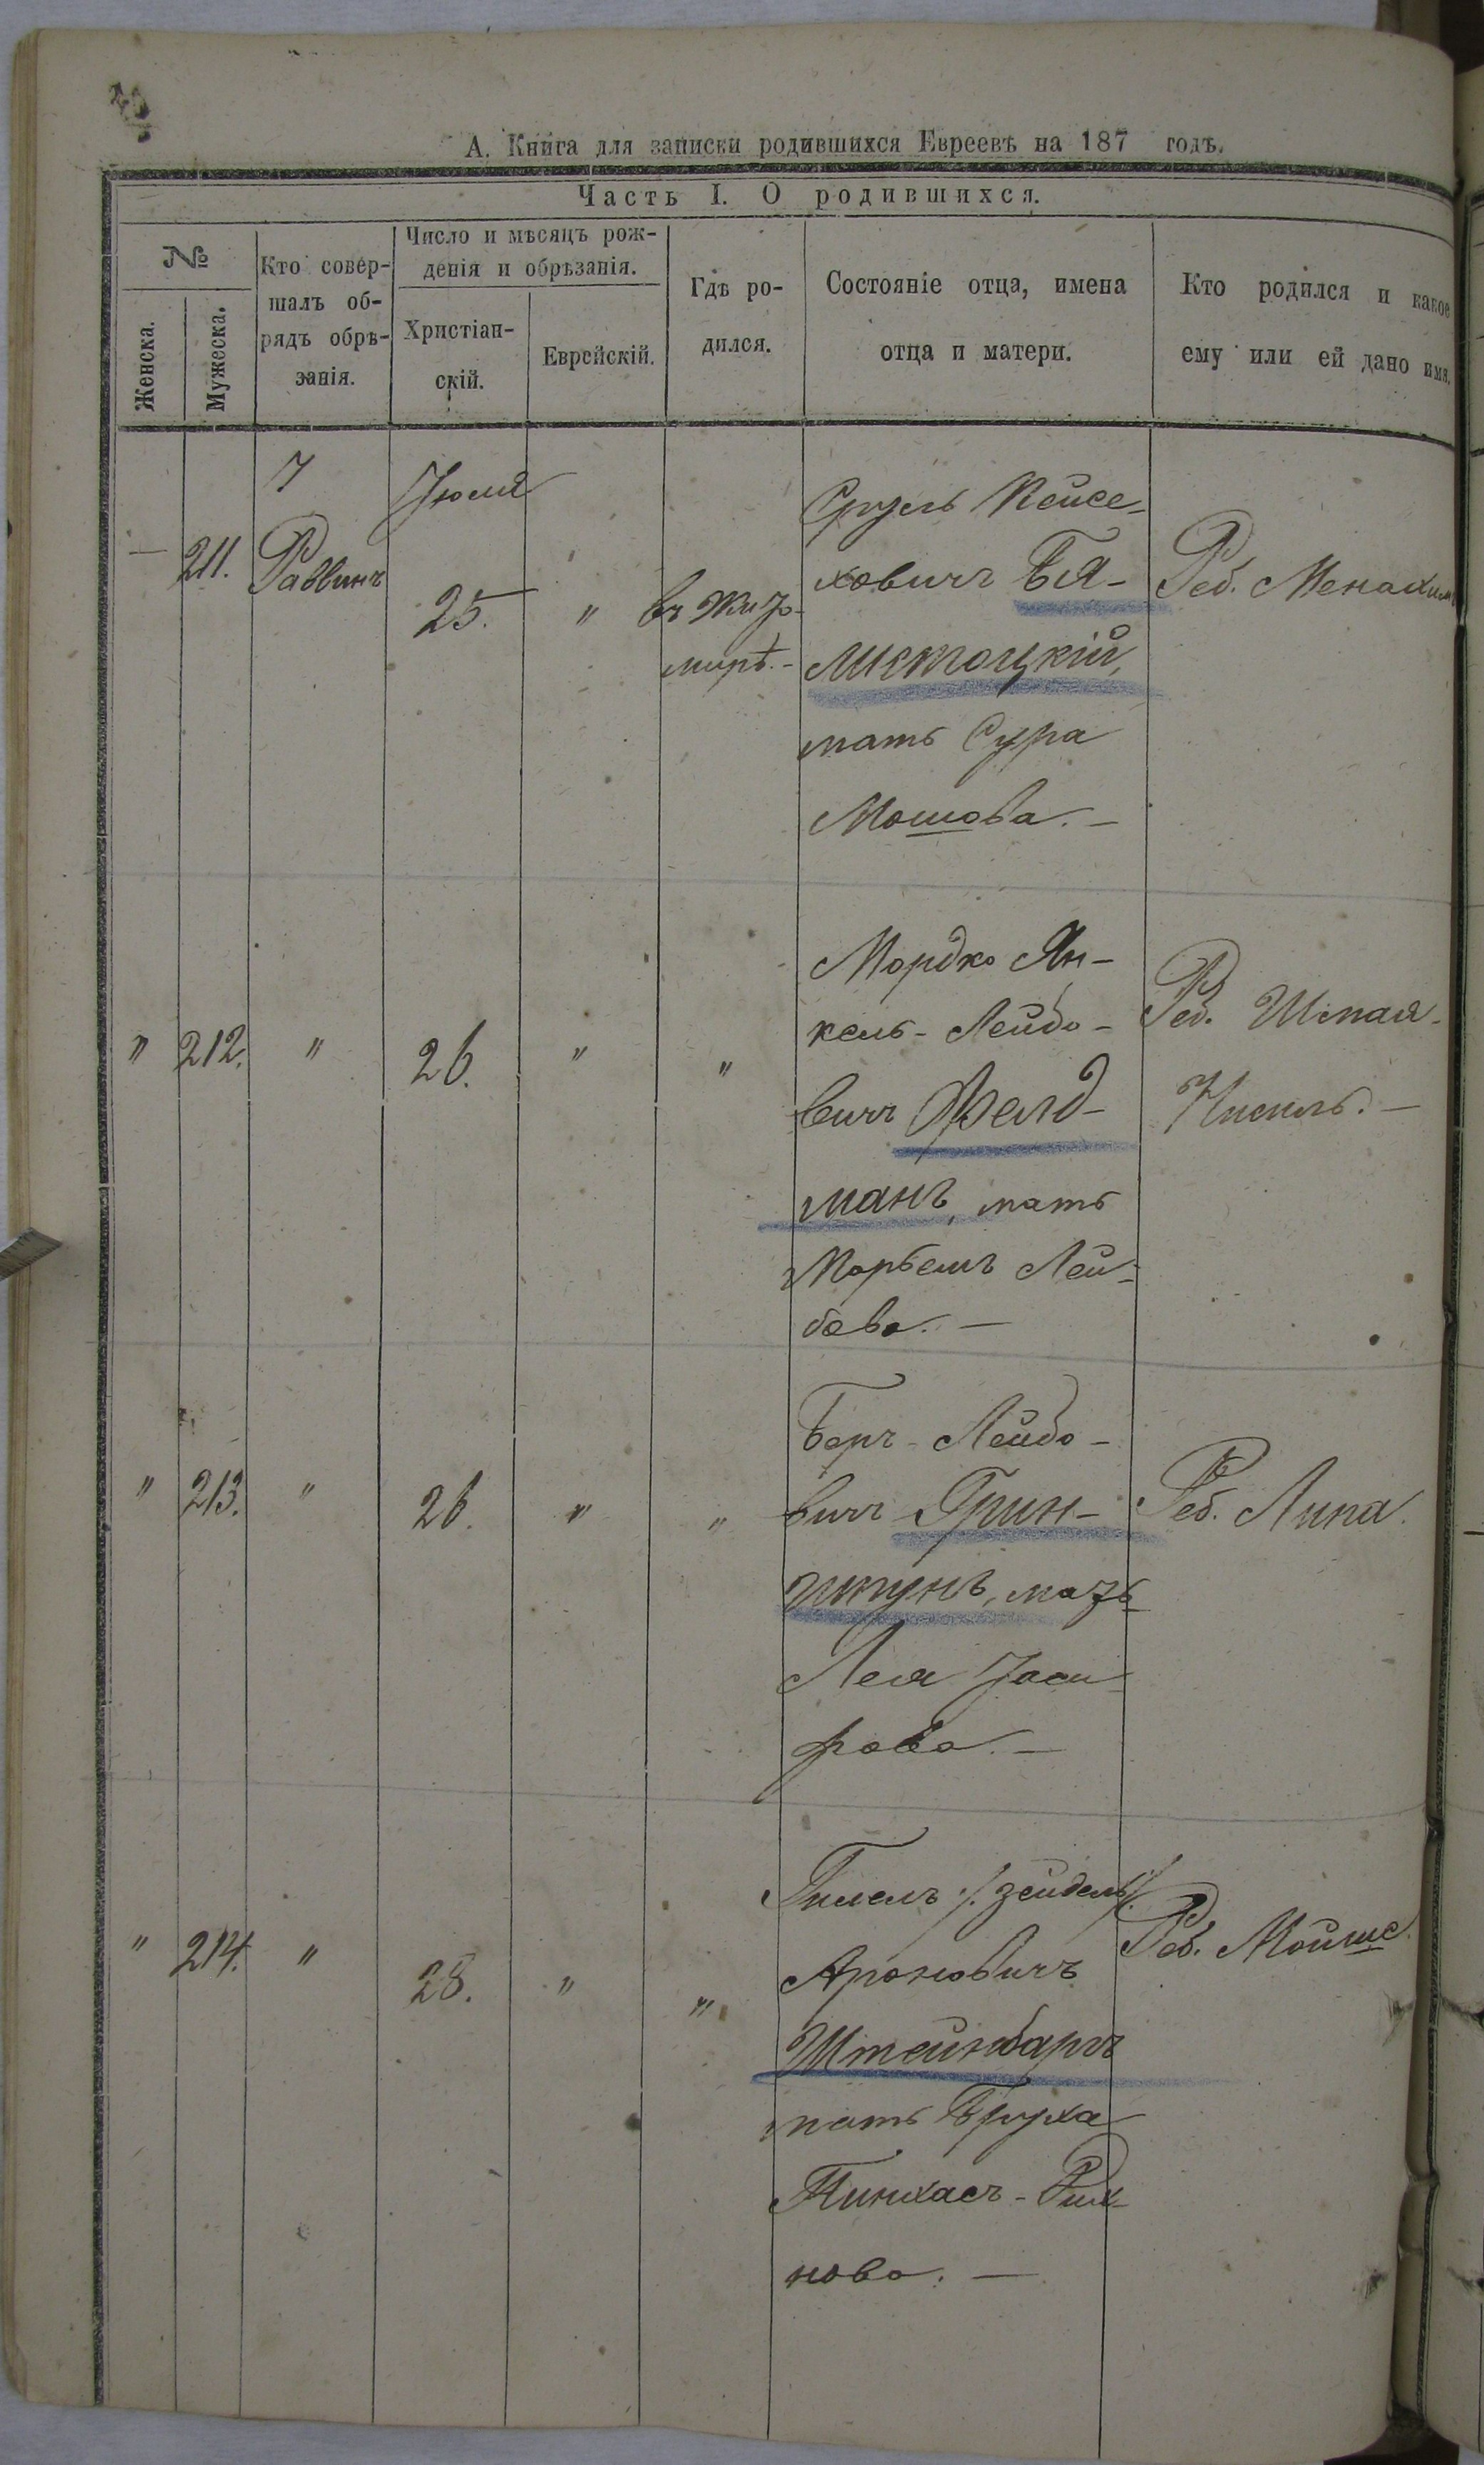 А. Книга для записки родившихся Евреевъ на 187 годъ.
Часть I. О родившихся.
№
Женска.
Мужеска.
Кто совер-
шалъ об-
рядъ обрѣ-
занія.
Число и мѣсяцъ рож-
денія и обрѣзанія.
Христіан-
скій.
Еврейскій.
Гдѣ ро-
дился.
Состояніе отца, имена
отца и матери.
Кто родился и какое
ему или ей дано имя.
— 211.
Раввинъ
Іюля
25.
"
въ Жито-
мирѣ.-
Сруль Пейсе-
ховичъ Бя-
листоцкій,
мать Сура
Мошова.-
Реб. Менахим
" 212. " 26. " "
Мордко Ян-
кель-Лейбо-
вичъ Фелд-
манъ, мать
Лей-
бова.-
Реб. Шмая-
" 213. " 26. " "
Беръ-Лейбо-
вичъ Грин-
шпунъ, мать
Лея
рова.-
Реб. Липа.
" 214. " 28. " "
Гилель /:Зейдель:/
Ароновичъ
Штейнбаргъ
мать Бруха
Пинхасъ-
нова.-
Реб. Мойше.